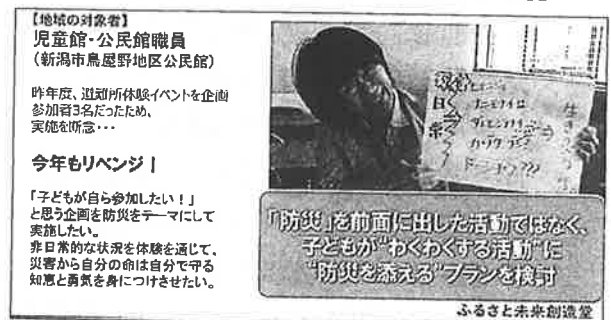 【地域の対象者】
児童館・公民館職員
（新潟市鳥屋野地区公民館）
昨年度、避難所体験イベントを企画
参加者3名だったため、
実施を断念・・・
今年もリベンジ！
「子どもが自ら参加したい！」
と思う企画を防災をテーマにして
実施したい。
非日常的な状況を体験を通じて、
災害から自分の命は自分で守る
知恵と勇気を身につけさせたい。
「防災」を前面に出した活動ではなく、
子どもが“わくわくする活動”に
“防災を添える”プランを検討
ふるさと未来創造堂